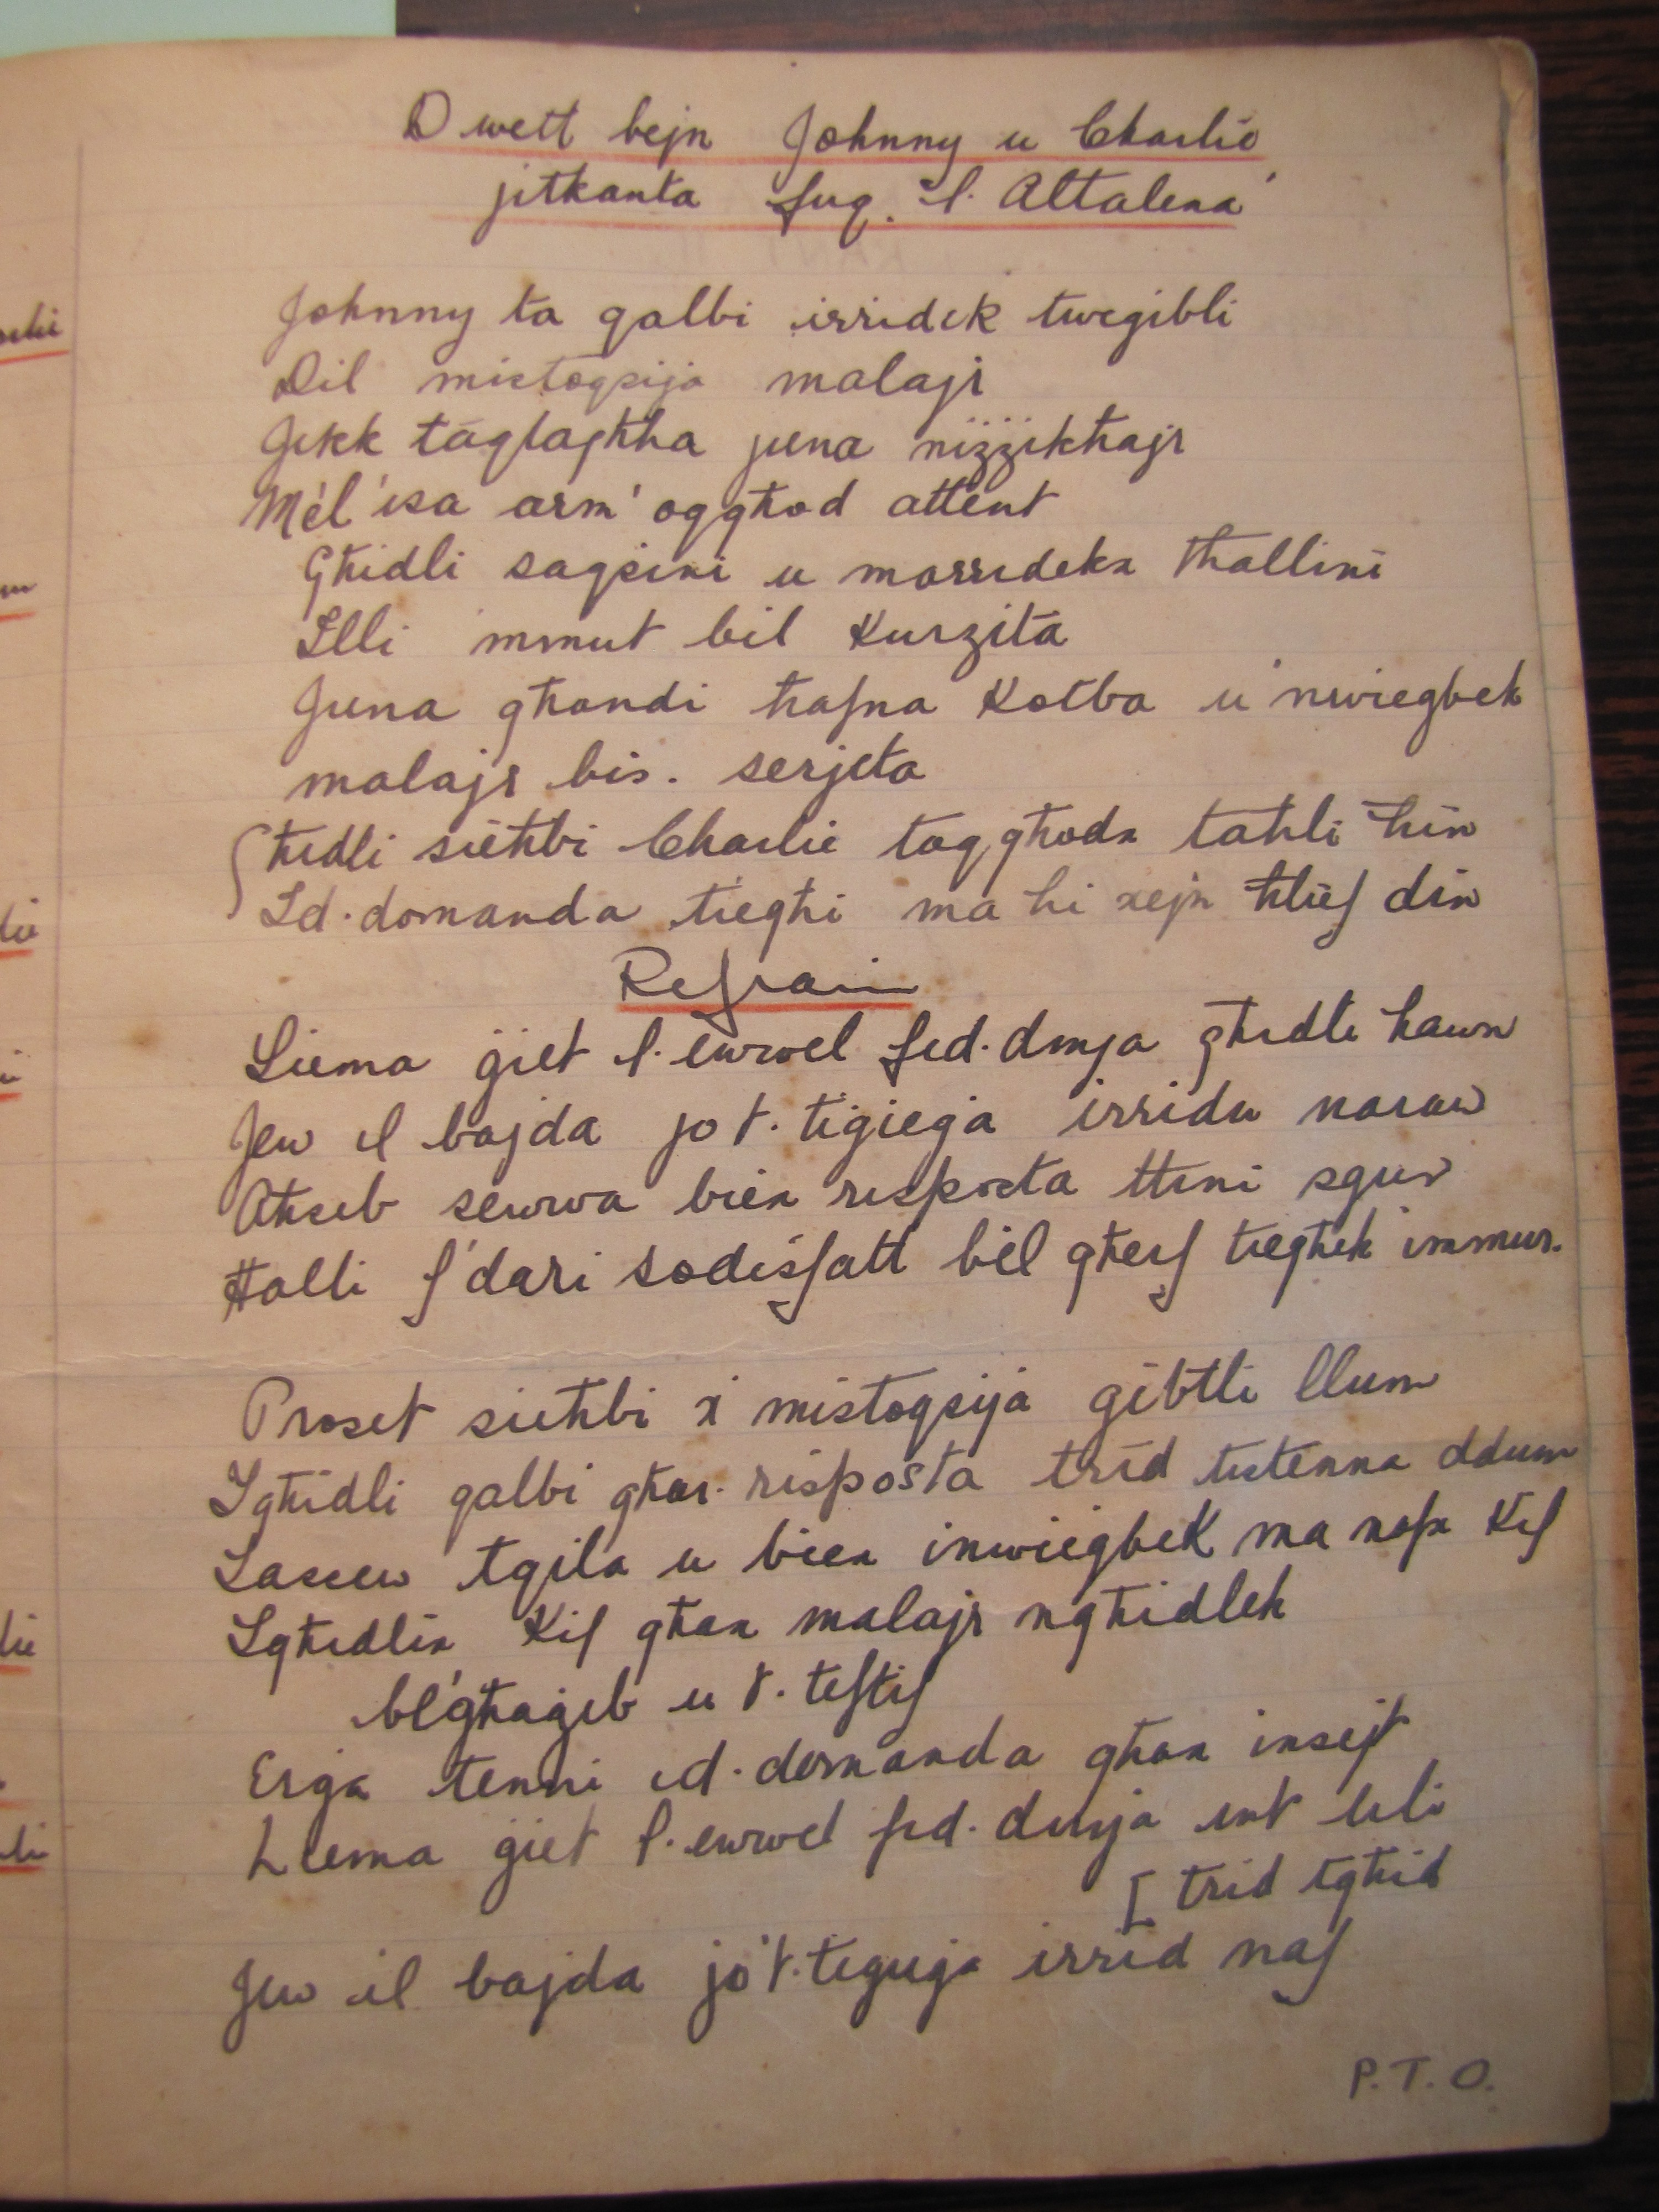 Dwett bejn Johnny u Charlie
jitkanta fuq l. Altalena
Johnny ta qalbi irridek twegibli
Dil mistoqsija malajr
Jekk taqlagħha jiena niżżikħajr
Mel 'isa arm' oqgħod attent
Għidli saqsini u morrideke tħallini
Illi mmut bil kurzita
Jiena għandi ħafna kotba u nwiegbek
malajr bis. serjeta
Għidli sieħbi Charlie toqgħodx taħli ħin
Id. domanda tiegħi ma hi xejn ħlief din
Refrain
Liema ġiet l. ewwel fid. dinja għidli hawn
Jew il bajda jo t. tigiega irridu naraw
Aħseb sewwa biex risposta ttini sgur
Ħalli f'dari sodisfatt bil għerf tiegħek immur.
Proset sieħbi x' mistoqsija gibtli llum
Igħidli qalbi għar. risposta trid tistenna ddum
Lascew tqila u biex inwiegbek ma nafx kif
Igħidlix kif għax malajr ngħidlek
bl'għageb u t. teftif
Erġa tenni id. domanda għax insejt
Liema ġiet l. ewwel fid. dinja int illi
[ trid tgħid
Jew il bajda jo't. tigieġa irrid naf
P.T.O.